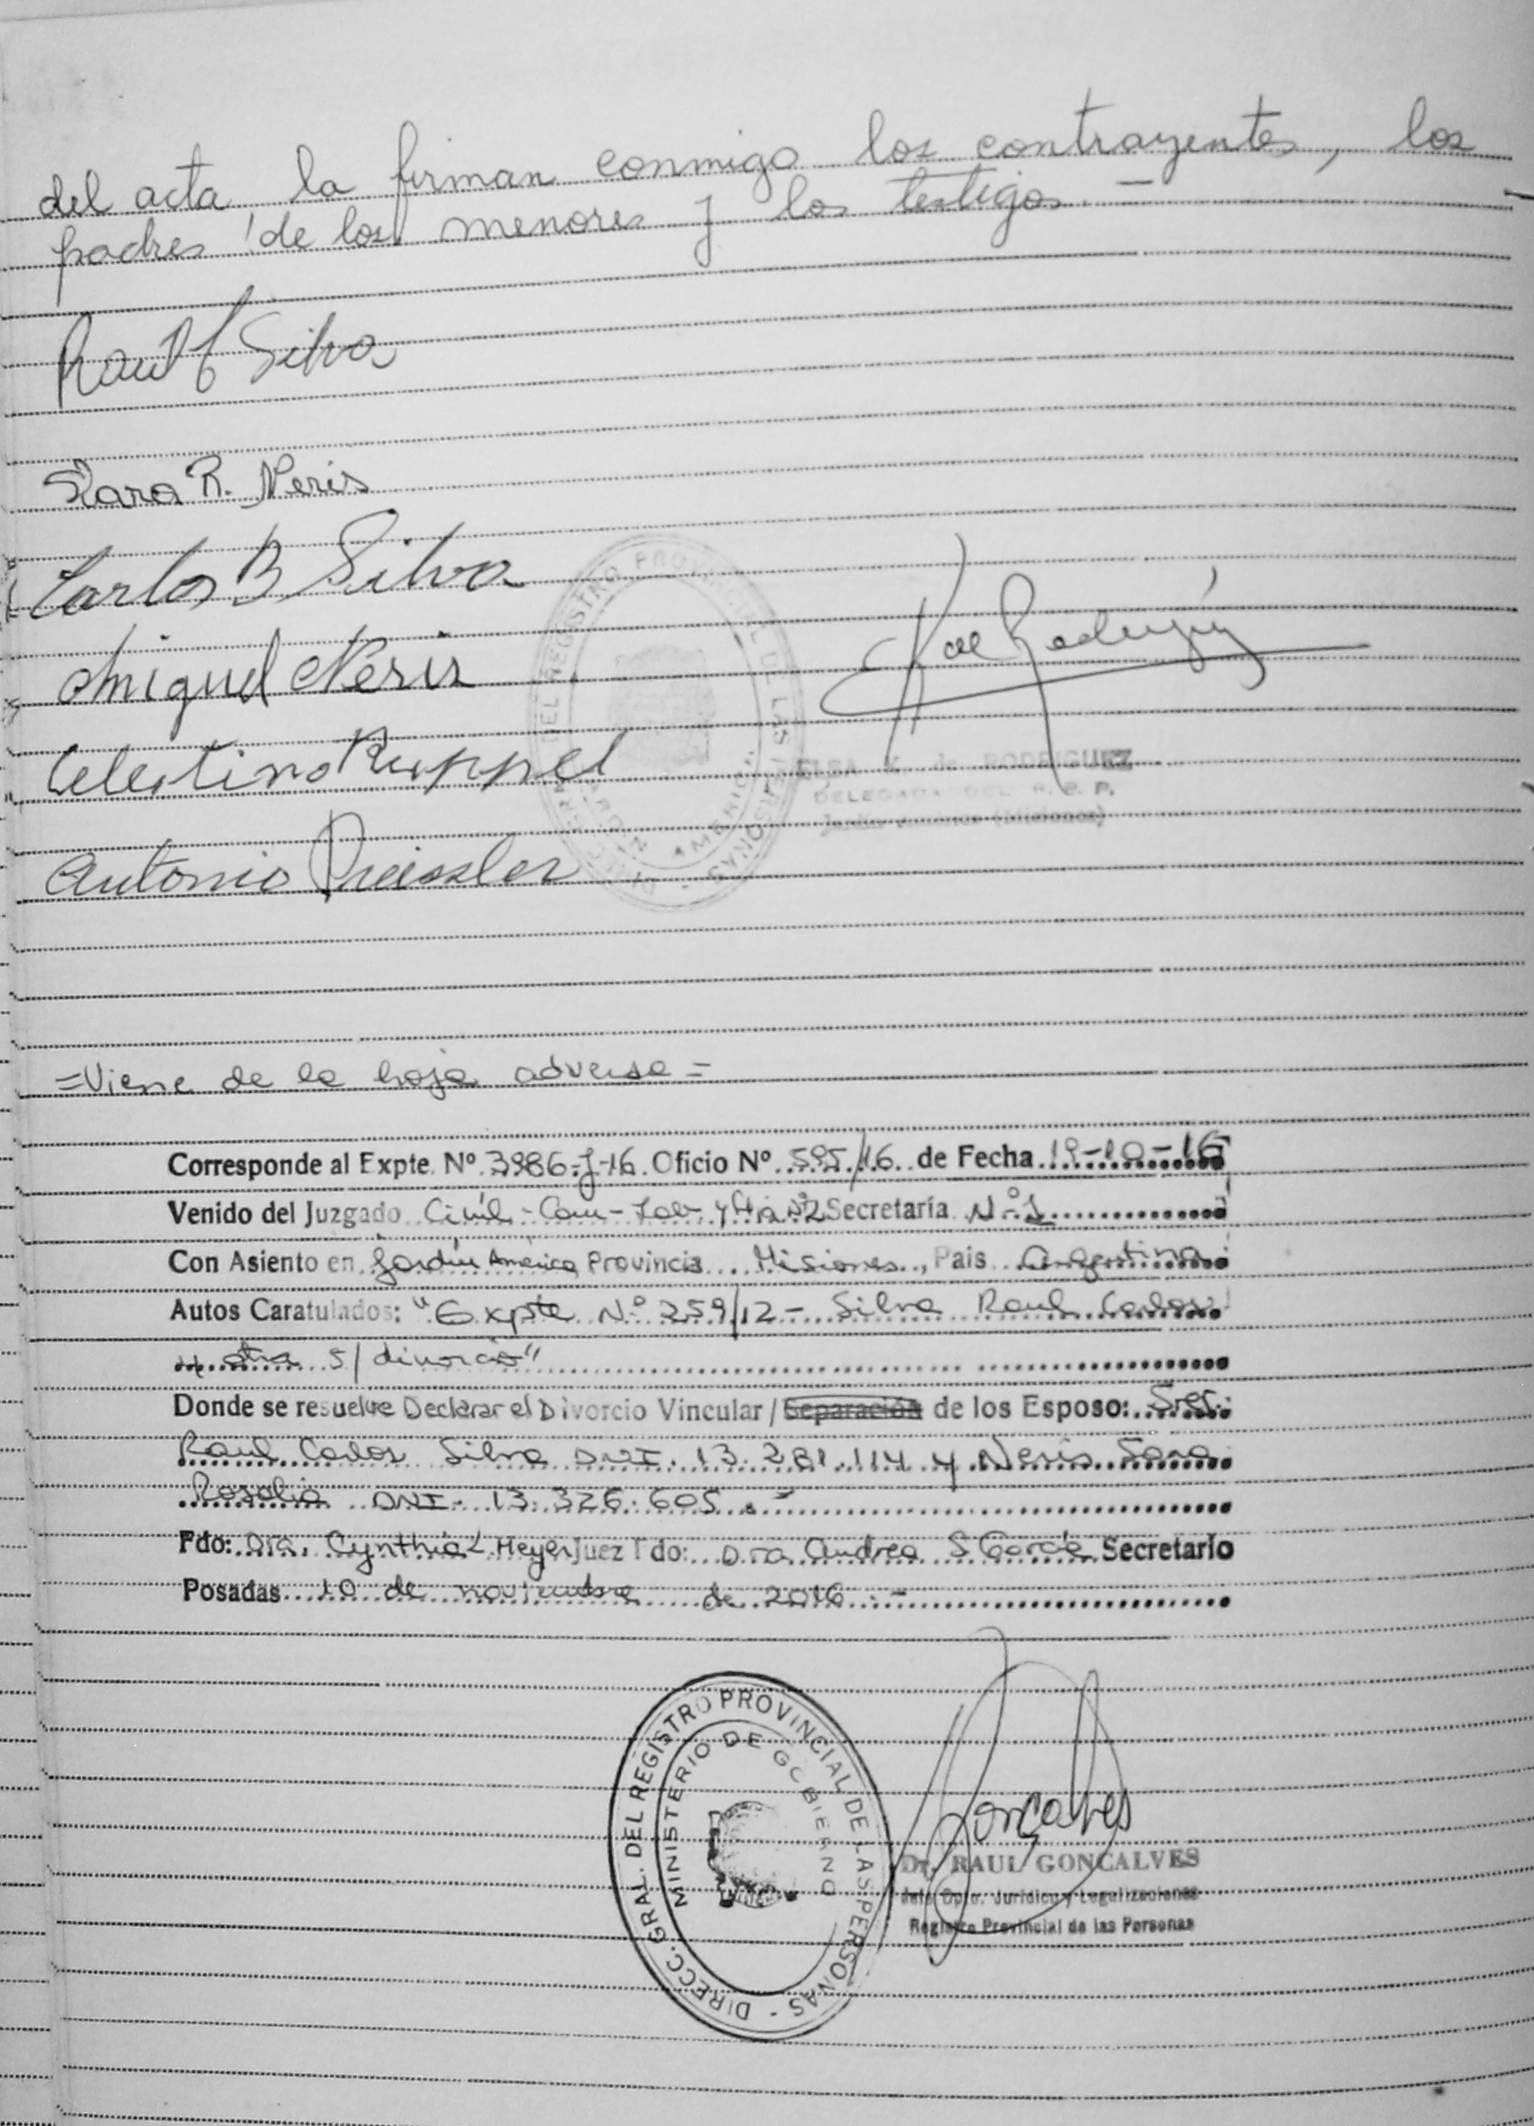 del acta, la firman conmigo los contrayentes, los
padres de los menores y los testigos. —
Raul C Silva
Sara R. Neris
Carlos B Silva
Miguel Neris
Celestino Ruppel
Antonio Preissler
K de Rodriguez
ELSA K. de RODRIGUEZ
DELEGADA DEL R. P. P.
Jardin America (Misiones)
=Viene de la hoja adversa=
Corresponde al Expte. Nº 3986-J-16. Oficio Nº 595/16 de Fecha 19-10-16
Venido del Juzgado Civil-Com-Lab y Flia Nº2 Secretaría Nº 1
Con Asiento en Jardín América Provincia Misiones, País Argentina
Autos Caratulados: "Expte Nº 259/12 - Silva Raul Carlos
y otra s/ divorcio"
Donde se resuelve Declarar el Divorcio Vincular / Separación de los Esposo: Sres.
Raul Carlos Silva DNI. 13.281.114 y Neris Sara
Rosalia DNI. 13.326.605. -
Fdo: Dra. Cynthia L Heyer Juez Fdo: Dra Andrea S García Secretario
Posadas 10 de noviembre de 2016. -
DIRECC. GRAL. DEL REGISTRO PROVINCIAL DE LAS PERSONAS -
MINISTERIO DE GOBIERNO
Goncalves
Dr. RAUL GONCALVES
Jefe Dpto. Jurídico y Legalizaciones
Registro Provincial de las Personas